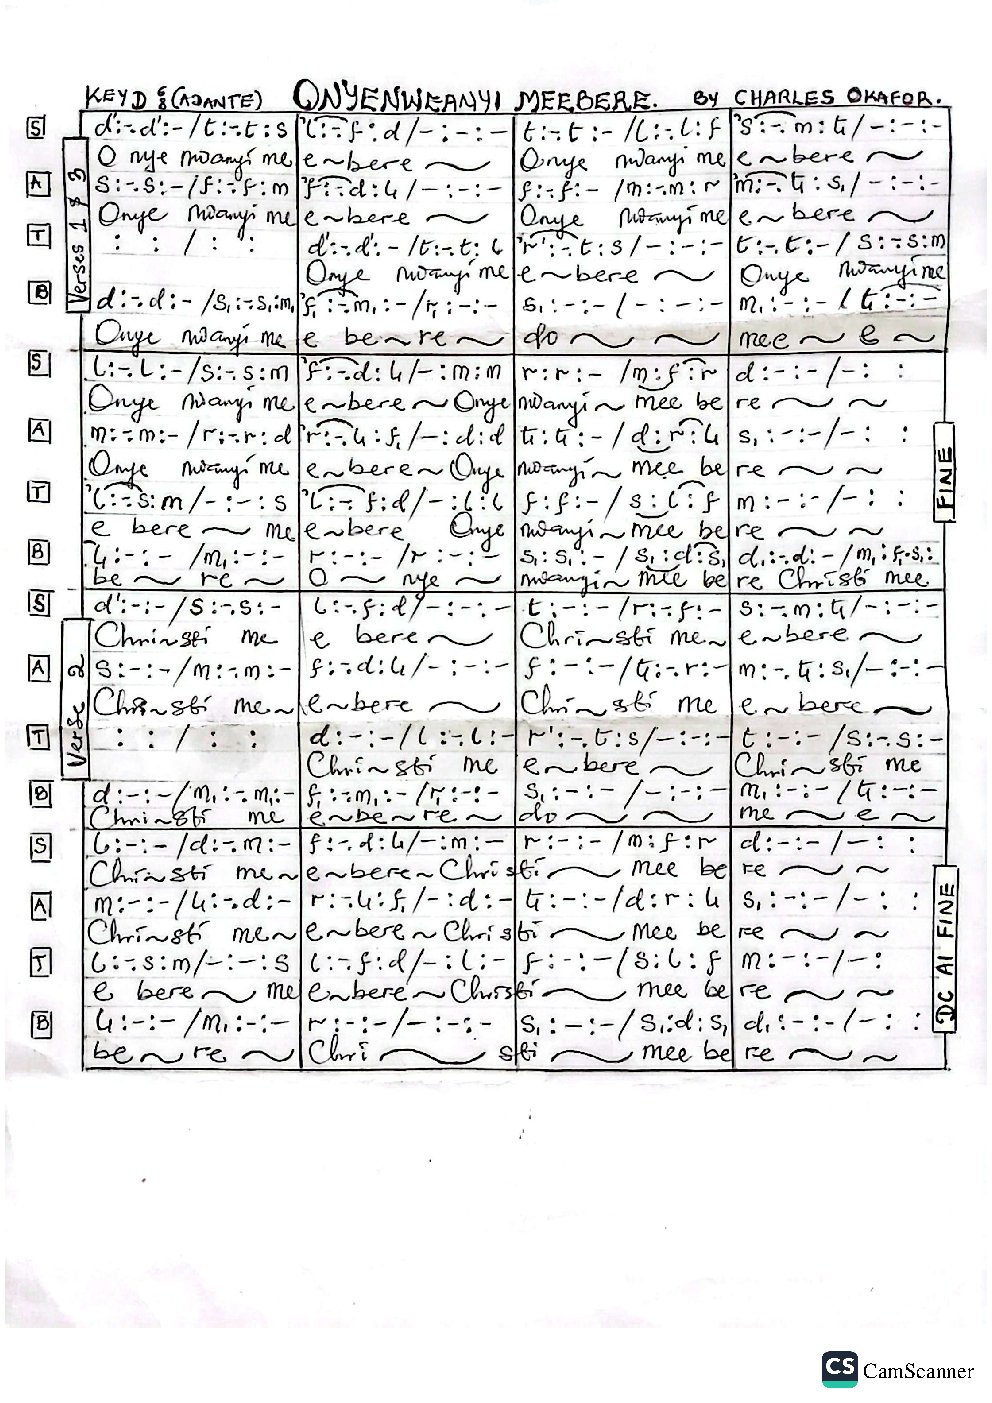 KEY D 6/8 (ADANTE) ONYENWEANYI MEEBERE. BY CHARLES OKAFOR.
Verses 1 & 3
S d':-.d':-/t:-.t:s | l:-.f:d/-:-:- | t:-.t:-/l:-.l:f | s:-.m:t,/-:-:-
O nye nwanyi me | e~bere ~ | Onye nwanyi me | e~bere ~
A s:-.s:-/f:-.f:m | f:-.d:l,/-:-:- | f:-.f:-/m:-.m:r | m:-.t,:s,/-:-:-
Onye nwanyi me | e~bere ~ | Onye nwanyi me | e~bere ~
T : : / : : | d':-.d':-/t:-.t:l | r':-.t:s/-:-:- | t:-.t:-/s:-.s:m
Onye nwanyi me | e~bere ~ | Onye nwanyi me
B d:-.d:-/s,:-.s,:m, | f,:-.m,:-/r,:-:- | s,:-:-/-:-:- | m,:-:-/t,:-:-
Onye nwanyi me | e be~re ~ | do ~ ~ | mee ~ e ~
S l:-.l:-/s:-.s:m | f:-.d:l,/-:m:m | r:r:-/m:f:r | d:-:-/-: :
Onye nwanyi me | e~bere~Onye | nwanyi~mee be | re ~ ~
A m:-.m:-/r:-.r:d | r:-.l,:f,/-:d:d | t,:t,:-/d:r:l, | s,:-:-/-: :
Onye nwanyi me | e~bere~Onye | nwanyi~mee be | re ~ ~
T l:-.s:m/-:-:s | l:-.f:d/-:l:l | f:f:-/s:l:f | m:-:-/-: :
e bere ~ me | e~bere Onye | nwanyi~mee be | re ~ ~
B l,:-:-/m,:-:- | r:-:-/r:-:- | s,:s,:-/s,:d:s, | d,:-.d:-/m,:f,.s,:
be ~ re ~ | O ~ nye ~ | nwanyi~mee be | re Christi mee
FINE
Verse 2
S d':-:-/s:-.s:- | l:-.f:d/-:-:- | t:-:-/r:-.f:- | s:-.m:t,/-:-:-
Chri~sti me | e bere ~ | Chri~sti me~ | e~bere ~
A s:-:-/m:-.m:- | f:-.d:l,/-:-:- | f:-:-/t,:-.r:- | m:-.t,:s,/-:-:-
Chri~sti me~ | e~bere ~ | Chri~sti me | e~bere ~
T : : / : : | d:-:-/l:-.l:- | r':-.t:s/-:-:- | t:-:-/s:-.s:-
Chri~sti me | e~bere ~ | Chri~sti me
B d:-:-/m,:-.m,:- | f,:-.m,:-/r,:-:- | s,:-:-/-:-:- | m,:-:-/t,:-:-
Christi me | e~be~re ~ | do ~ ~ | me ~ e ~
S l:-:-/d:-.m:- | f:-.d:l,/-:m:- | r:-:-/m:f:r | d:-:-/-: :
Chri~sti me~ | e~bere~Chris | ti ~ mee be | re ~ ~
A m:-:-/l,:-.d:- | r:-.l,:f,/-:d:- | t,:-:-/d:r:l, | s,:-:-/-: :
Chri~sti me~ | e~bere~Chris | ti ~ mee be | re ~ ~
T l:-.s:m/-:-:s | l:-.f:d/-:l:- | f:-:-/s:l:f | m:-:-/-:
e bere ~ me | e~bere~Chris | ti ~ mee be | re ~ ~
B l,:-:-/m,:-:- | r:-:-/-:-:- | s,:-:-/s,:d:s, | d,:-:-/-: :
be ~ re ~ | Chri ~ s | ti ~ mee be | re ~ ~
DC Al FINE
CS CamScanner